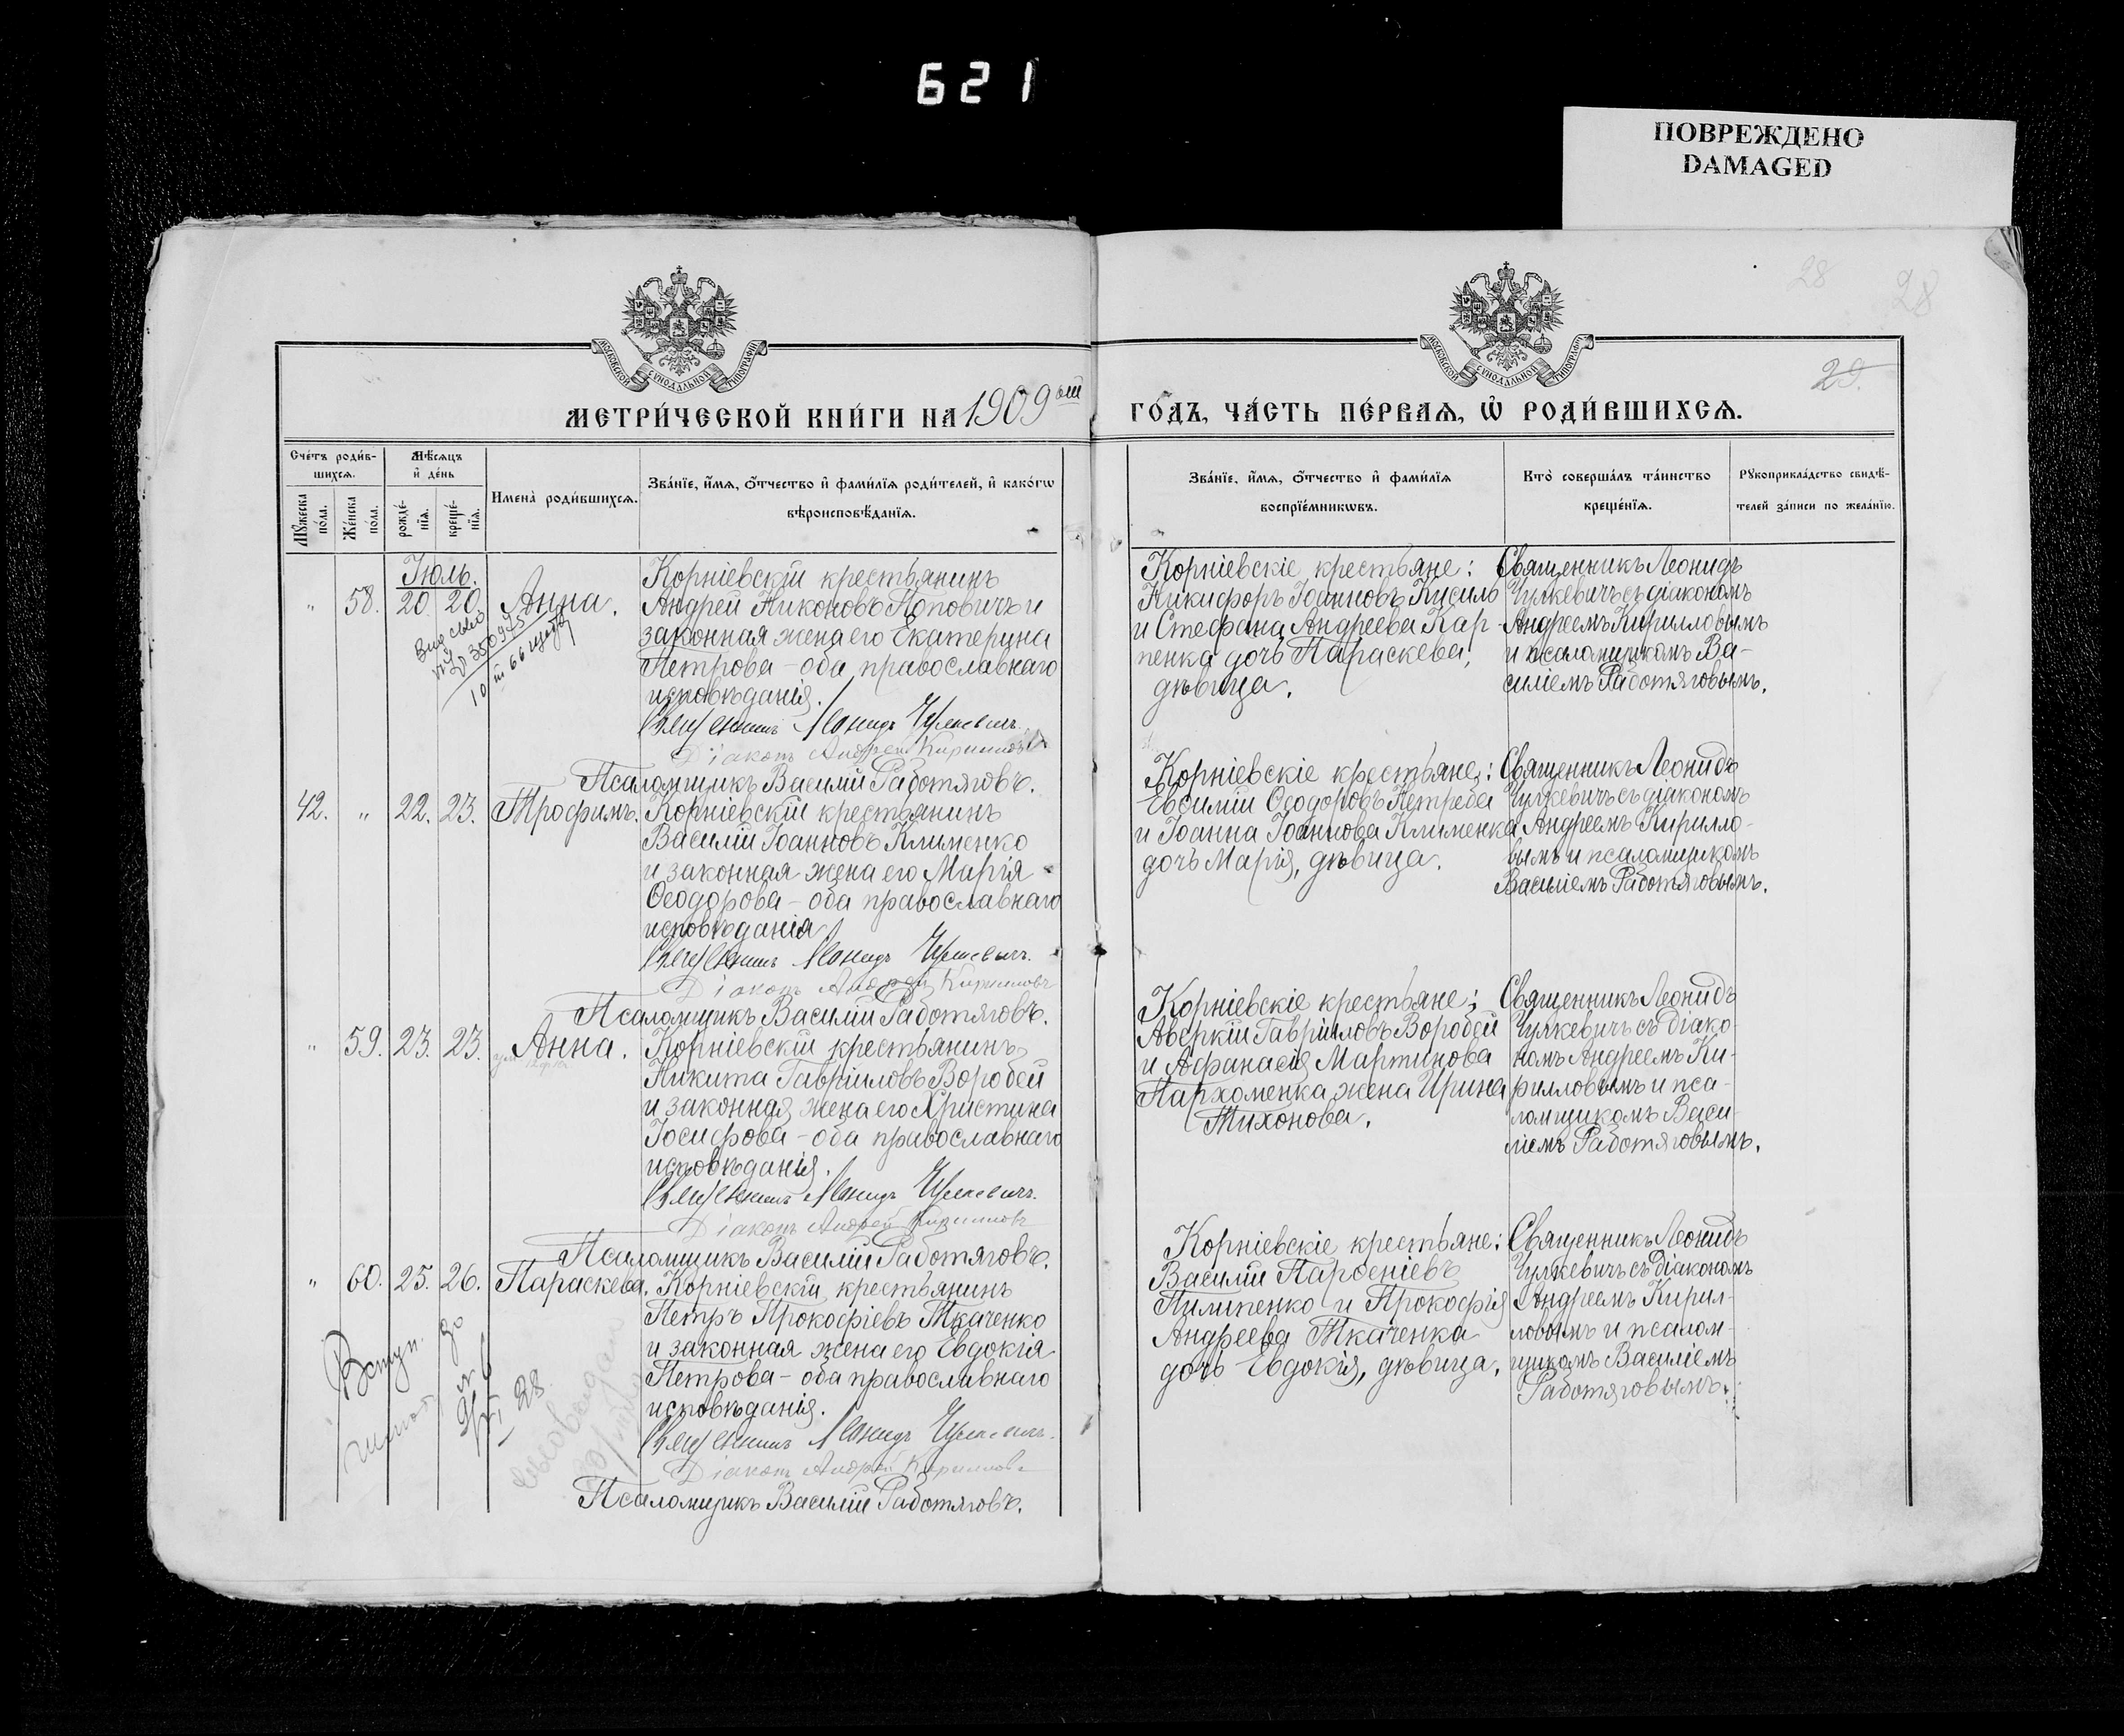 621
ПОВРЕЖДЕНО
DAMAGED
28
28
29.
МОСКОВСКОЙ СѴНОДАЛЬНОЙ ТИПОГРАФІИ
МОСКОВСКОЙ СѴНОДАЛЬНОЙ ТИПОГРАФІИ
МЕТРИ́ЧЕСКОЙ КНИ́ГИ НА 1909 ый
ГО́ДЪ, ЧА́СТЬ ПЕ́РВАѦ, Ѡ РОДИ́ВШИХСѦ.
Сче́тъ роди́в-
шихсѧ.
Мѣ́сѧцъ
и҆ де́нь
Мꙋ́жеска
по́ла.
Же́нска
по́ла.
рожде́-
нїѧ.
креще́-
нїѧ.
Имена̀ роди́вшихсѧ.
Зва́нїе, и҆́мѧ, ѻ҆́тчество и҆ фами́лїѧ роди́телей, и҆ како́гѡ
вѣроисповѣ́данїѧ.
Зва́нїе, и҆́мѧ, ѻ҆́тчество и҆ фами́лїѧ
воспрїе́мникѡвъ.
Кто̀ соверша́лъ та́инство
креще́нїѧ.
Рꙋкоприкла́дство свидѣ́-
телей за́писи по жела́нїю.
Іюль.
" 58. 20. 20. Анна.
Корніевскій крестьянинъ
Андрей Никоновъ Поповичъ и
законная жена его Екатерина
Петрова – оба православнаго
исповѣданія.
Священникъ Леонидъ Чулкевичъ.
Діаконъ Андрей Кирилловъ
Псаломщикъ Василій Работяговъ.
Корніевскіе крестьяне:
Никифоръ Іоанновъ Кисиль
и Стефана Андреева Кар-
пенка дочь Параскева,
дѣвица.
Священникъ Леонидъ
Чулкевичъ съ діакономъ
Андреемъ Кирилловымъ
и псаломщикомъ Ва-
силіемъ Работяговымъ.
42. " 22. 23. Трофимъ.
Корніевскій крестьянинъ
Василій Іоанновъ Клименко
и законная жена его Марія
Ѳеодорова – оба православнаго
исповѣданія.
Священникъ Леонидъ Чулкевичъ.
Діаконъ Андрей Кирилловъ
Псаломщикъ Василій Работяговъ.
Корніевскіе крестьяне:
Евсимій Ѳеодоровъ Петреба
и Іоанна Іоаннова Клименка
дочь Марія, дѣвица.
Священникъ Леонидъ
Чулкевичъ съ діакономъ
Андреемъ Кирилло-
вымъ и псаломщикомъ
Василіемъ Работяговымъ.
" 59. 23. 23. Анна.
Корніевскій крестьянинъ
Никита Гавріиловъ Воробей
и законная жена его Христина
Іосифова – оба православнаго
исповѣданія.
Священникъ Леонидъ Чулкевичъ.
Діаконъ Андрей Кирилловъ
Псаломщикъ Василій Работяговъ.
Корніевскіе крестьяне:
Аверкій Гавріиловъ Воробей
и Афанасія Мартинова
Пархоменка жена Ирина
Тихонова.
Священникъ Леонидъ
Чулкевичъ съ діако-
номъ Андреемъ Ки-
рилловымъ и пса-
ломщикомъ Васи-
ліемъ Работяговымъ.
" 60. 25. 26. Параскева.
Корніевскій крестьянинъ
Петръ Прокофіевъ Ткаченко
и законная жена его Евдокія
Петрова – оба православнаго
исповѣданія.
Священникъ Леонидъ Чулкевичъ.
Діаконъ Андрей Кирилловъ
Псаломщикъ Василій Работяговъ.
Корніевскіе крестьяне:
Василій Парѳеніевъ
Пилипенко и Прокофія
Андреева Ткаченка
дочь Евдокія, дѣвица.
Священникъ Леонидъ
Чулкевичъ съ діакономъ
Андреемъ Кирил-
ловымъ и псалом-
щикомъ Василіемъ
Работяговымъ.